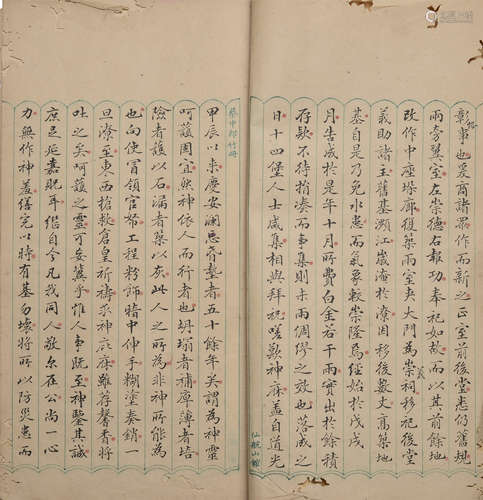 彰事也爰商諸舉作而新之正室前後堂悉仍舊規
兩旁翼室左崇德右報功奉祀如故而以其前餘地
改作中座垛廊復築兩室夾大門為崇祠移祀後堂
義助諸玉舊基瀕江歲淹於潦因移後數丈高築地
基自是乃免水患而氣象較崇隆焉經始於戊戌
月告成於是年十月所費白金若干兩實出於餘積
存欵不待捐湊而事集則未雨綢繆之效也落成之
日十四堡人士咸集相與拜祝嗟歎神庥蓋自道光
蔡中郎竹冊
甲辰以来慶安瀾 者五十餘年矣謂為神靈
呵護固宜然神依人而行者也坍塌者補庳薄者培
險者護以石漏者築以灰此人之所為非神所能為
也向使冒領官帑工程粉飾暗中伸手糊塗奏銷一
旦潦至東西搶救倉皇祈禱求神庇庥雖荐馨香将
吐之矣呵護之靈可妄冀乎惟人事既至神鑒其誠
庶足延嘉貺耳繼自今凡我同人敬尔在公尚一心
力無作神羞繕完以時有基勿壞将所以防災患而